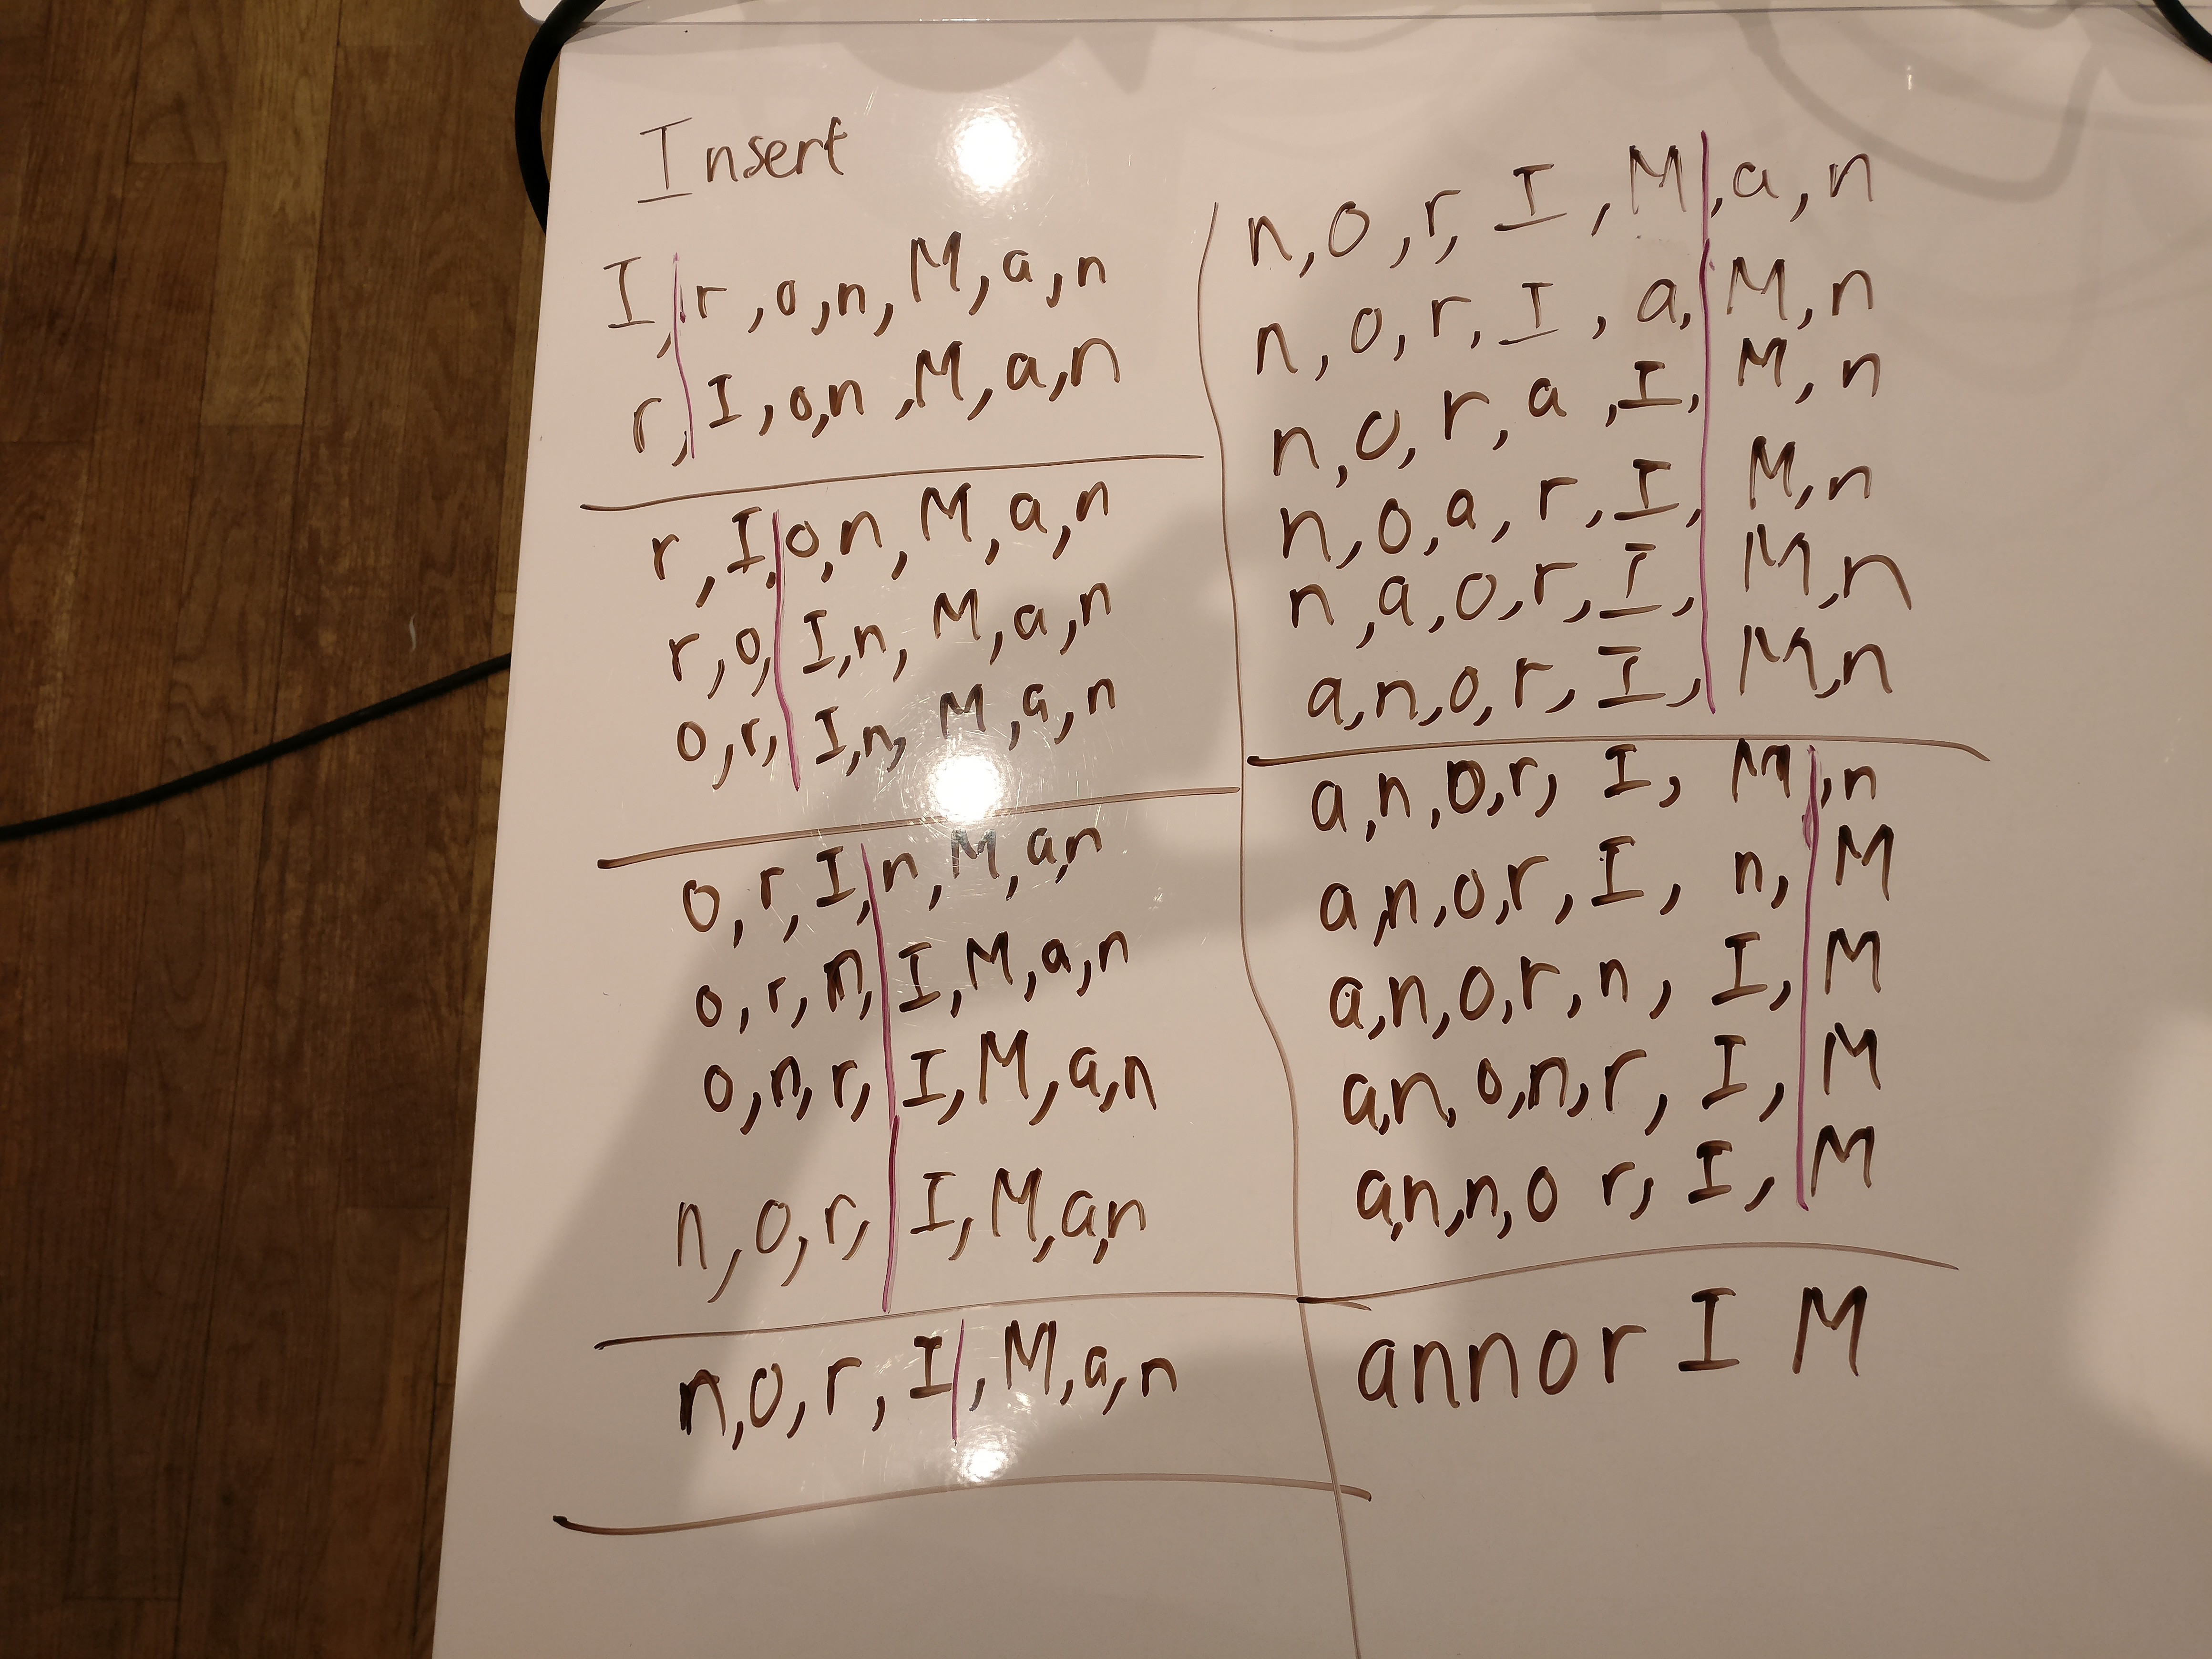 Insert
I, r, o, n, M, a, n
r, I, o, n, M, a, n
r, I, o, n, M, a, n
r, o, I, n, M, a, n
o, r, I, n, M, a, n
o, r, I, n, M, a, n
o, r, n, I, M, a, n
o, n, r, I, M, a, n
n, o, r, I, M, a, n
n, o, r, I, M, a, n
n, o, r, I, M, a, n
n, o, r, I, a, M, n
n, o, r, a, I, M, n
n, o, a, r, I, M, n
n, a, o, r, I, M, n
a, n, o, r, I, M, n
a, n, o, r, I, M, n
a, n, o, r, I, n, M
a, n, o, r, n, I, M
a, n, o, n, r, I, M
a, n, n, o r, I, M
annor I M